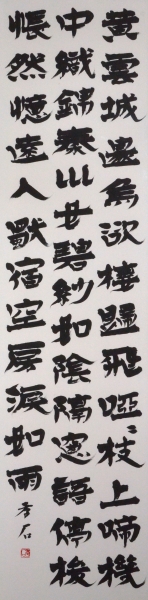 黃雲城邊烏欲棲歸飛啞〻枝上啼機
中織錦秦川女碧紗如陰隔窓語停梭
悵然憶遠人獨宿空房淚如雨